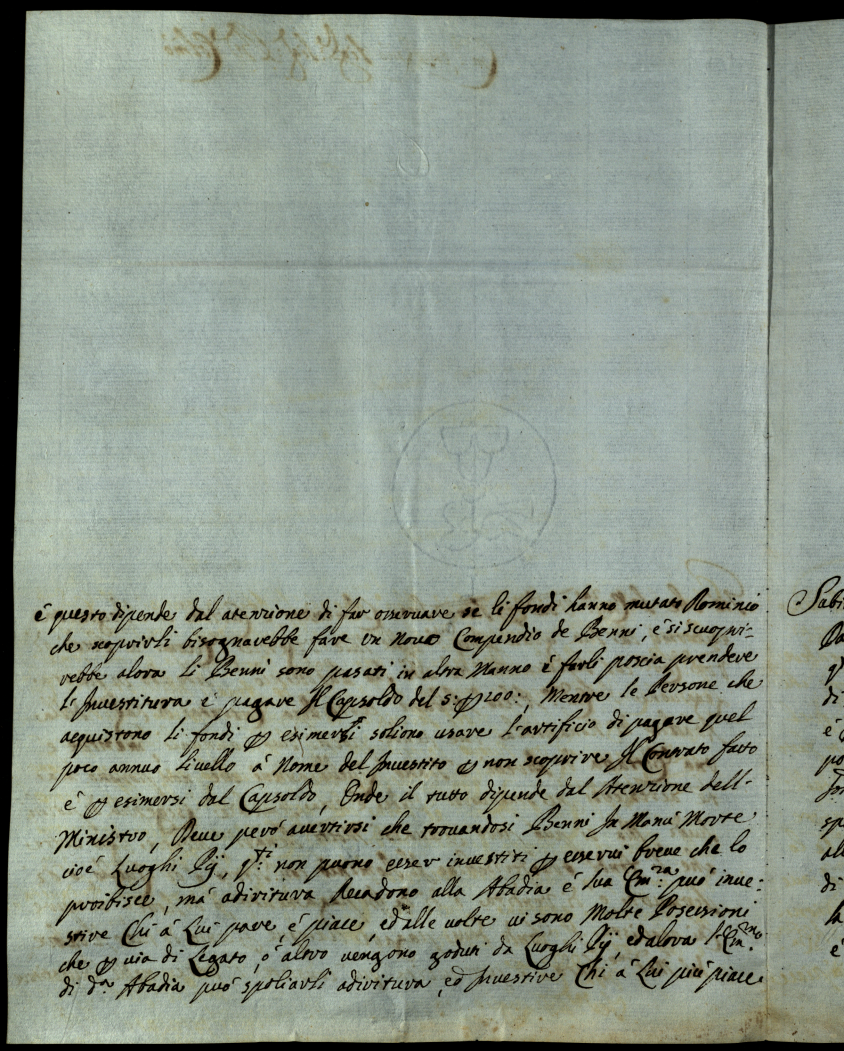 é questo dipende dal atenzione di far osservare se li fondi hanno mutato Dominio
che scoprirli bisognarebbe fare un novo Compendio de Benni, é si scopri-
rebbe alora li Benni sono pasati in altra Manno é farli poscia prendere
l'Investitura é pagare Il Capsoldo del 5: per 100:, Mentre le Persone che
acquistono li fondi per esimersi soliono usare l'artificio di pagare quel
poco annuo Livello á Nome del Investito per non scoprire Il Contrato fatto
é per esimersi dal Capsoldo, Onde il tutto dipende dal Atenzione dell-
Ministro, Deve peró avertirsi che trovandosi Benni In Manú Morte
cioé Luoghi Pij, q.ti non puono esser investiti per esservi breve che lo
proibisce, má adiritura Recadono alla Abadia é Sua Em:za puó inve:
stire Chi á Lui pare, é piace, ed alle volte vi sono Molte Posessioni
che per via di Legato, ó altro vengono goduti da Luoghi Pij, ed alora l'Em:mo
di d.a Abadia puó spoliarli adiritura, ed Investire Chi á Lui piú piace